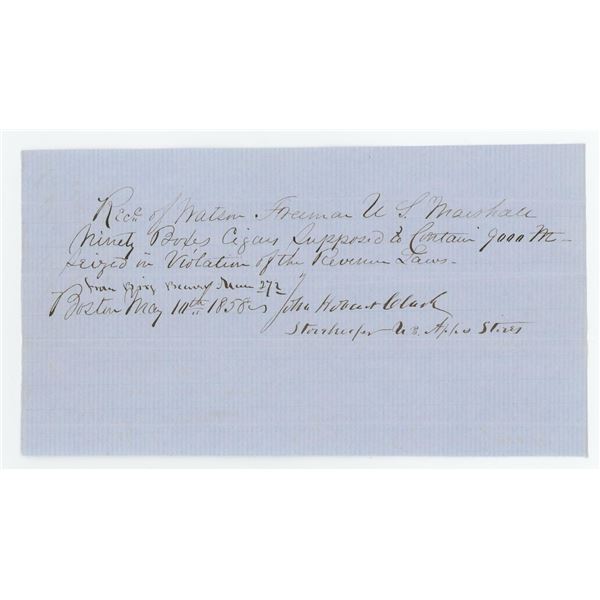 Recd. of Watson Freeman U S. Marshall
Ninety Boxes Cigars Supposed to Contain 9000 M-
seized in Violation of the Revenue Laws.
from Brig 272
Boston May 10th 1858
John Hobart Clark
Storekeeper U.S. App's Stores